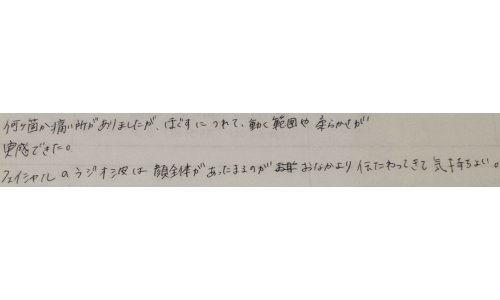 何ヶ菌か痛い所がありましたが、ほぐすにつれて、動く範囲や柔らかさが
実感できた。
フェイシャルのラジオ波は顔全体があったまるのがおなかより伝たわってきて気持ちよい。